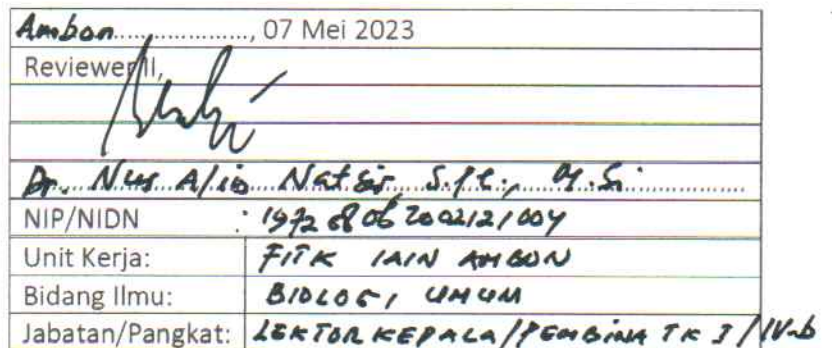 Ambon...................., 07 Mei 2023
Reviewer II,
Dr. Nur Alim Natsir, S.Pt., M.Si
NIP/NIDN : 197208062002121004
Unit Kerja: FITK IAIN AMBON
Bidang Ilmu: BIOLOGI UMUM
Jabatan/Pangkat: LEKTOR KEPALA/PEMBINA TK I/IV-b